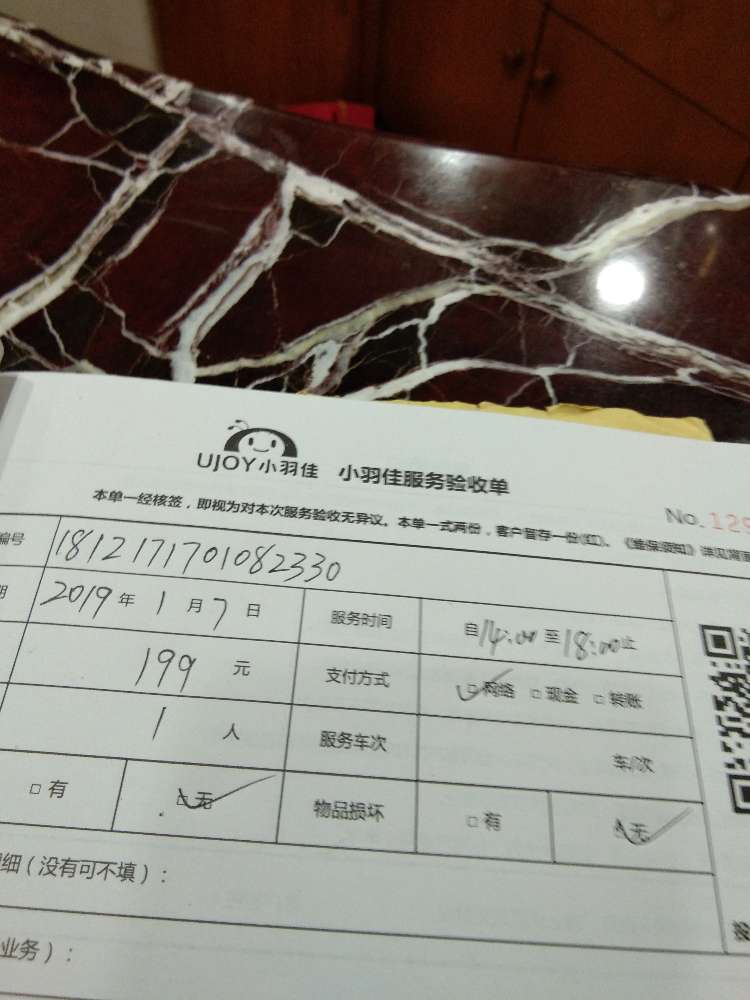 UJOY小羽佳 小羽佳服务验收单
No.129
本单一经核签，即视为对本次服务验收无异议。本单一式两份，客户留存一份(红)。《维保须知》详见背面
编号 1812171701082330
期 2019年1月7日 服务时间 自14:00至18:00止
199元 支付方式 □网络 □现金 □转账
1人 服务车次 车/次
□有 □无 物品损坏 □有 □无
细（没有可不填）：
业务）：